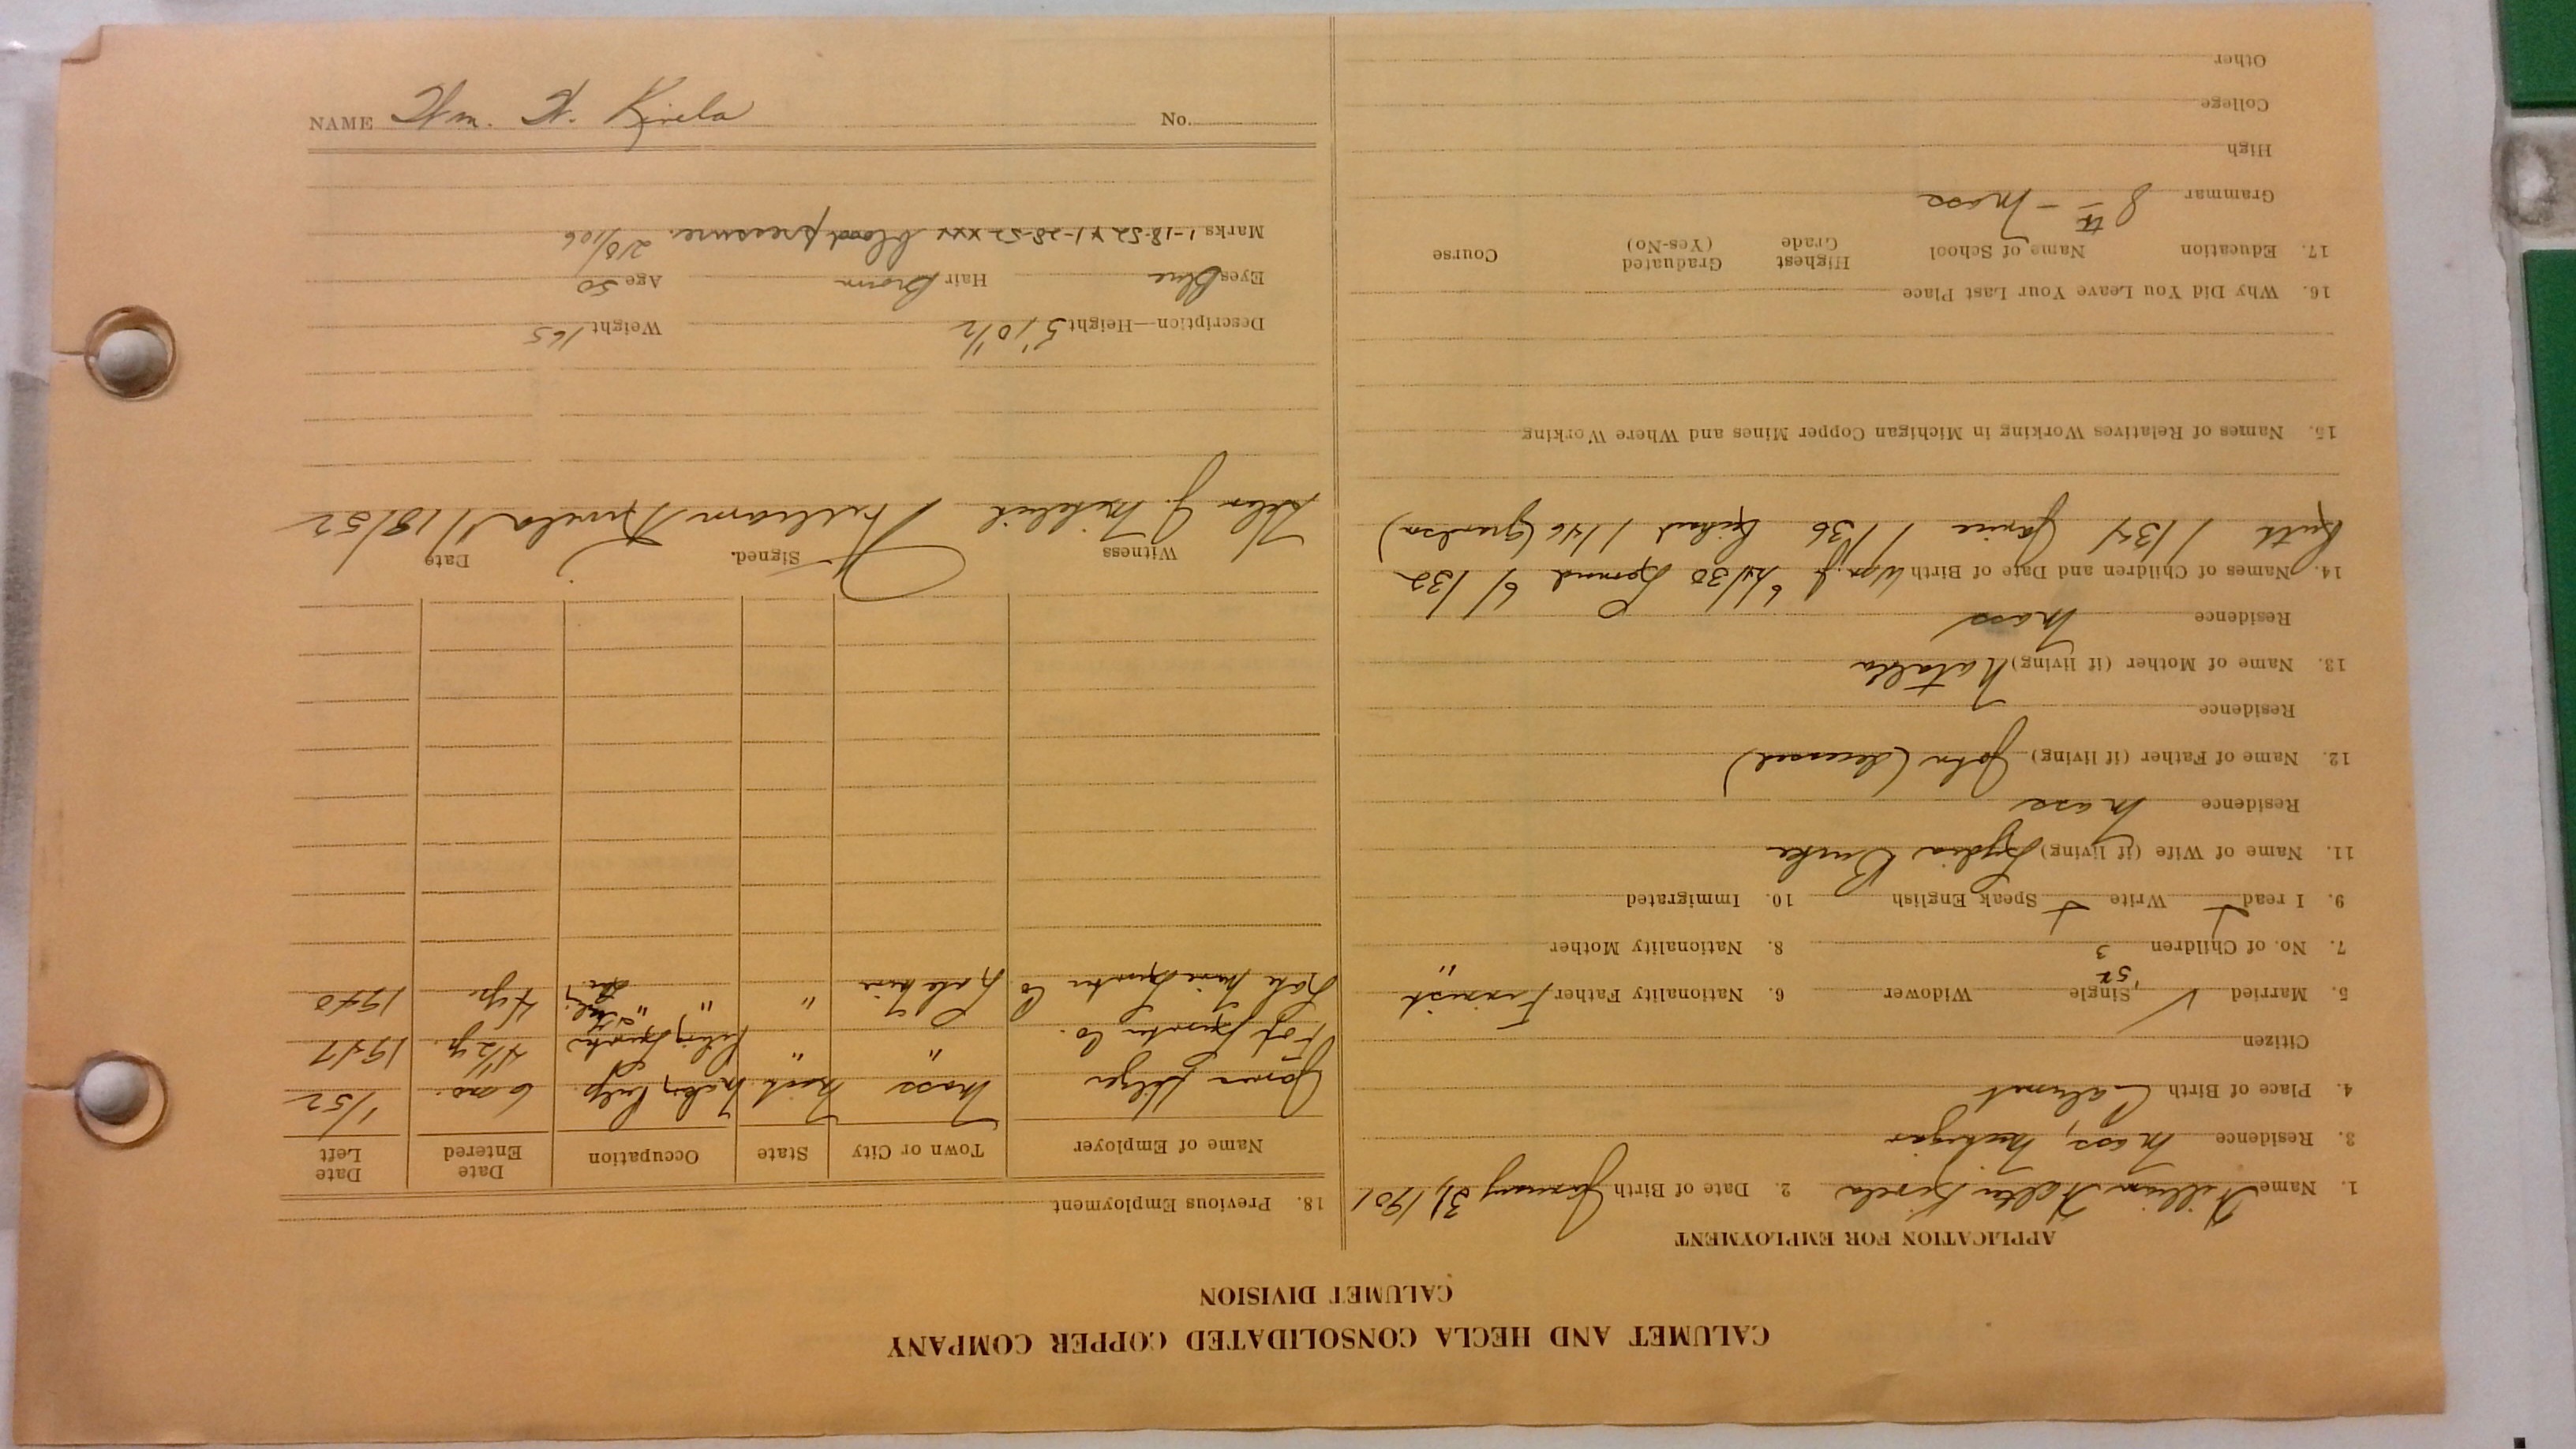 CALUMET AND HECLA CONSOLIDATED COPPER COMPANY
CALUMET DIVISION
APPLICATION FOR EMPLOYMENT
1. Name William Walter Kivela 2. Date of Birth January 31, 1901
3. Residence Mass, Michigan
4. Place of Birth Calumet
Citizen
5. Married ✓ Single Widower 6. Nationality Father Finnish
7. No. of Children 3 8. Nationality Mother "
9. I read Write Speak English 10. Immigrated
11. Name of Wife (if living) Lydia
Residence Mass
12. Name of Father (if living) John (deceased)
Residence
13. Name of Mother (if living)
Residence Mass
14. Names of Children and Date of Birth Wm. J. 6/ /30 6/ /32
Ruth 1/34 Janice 1/36 1/46 (grandson)
15. Names of Relatives Working in Michigan Copper Mines and Where Working
16. Why Did You Leave Your Last Place
17. Education Name of School Highest Grade Graduated (Yes-No) Course
Grammar 8th - Mass
High
College
Other
18. Previous Employment
Name of Employer Town or City State Occupation Date Entered Date Left
Mass Mich 6 mo. 1/52
" " 4 1/2 yr. 1947
Lake Mine Co. Lake Mine " " 4 yr. 1940
Witness Signed. Date
William Kivela 1/18/52
Description—Height 5' 10 1/2" Weight 165
Eyes Blue Hair Brown Age 50
Marks 1-18-52 x 1-28-52 xxx blood pressure. 210/106
NAME Wm. W. Kivela No.